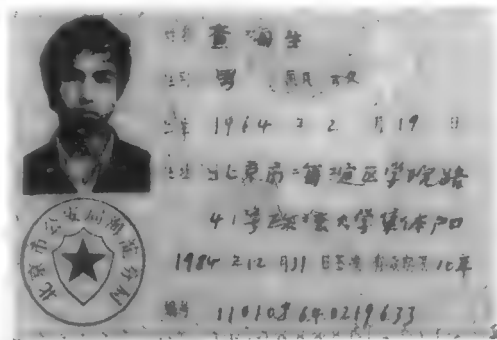 姓名 查海生
性别 男 民族 汉
1964 年 2 月 19 日
住址 北京市海淀区学院路
41号政法大学集体户口
1984 年 12 月 31 日签发 有效期 10年
编号 110108640219633
北京市公安局海淀分局